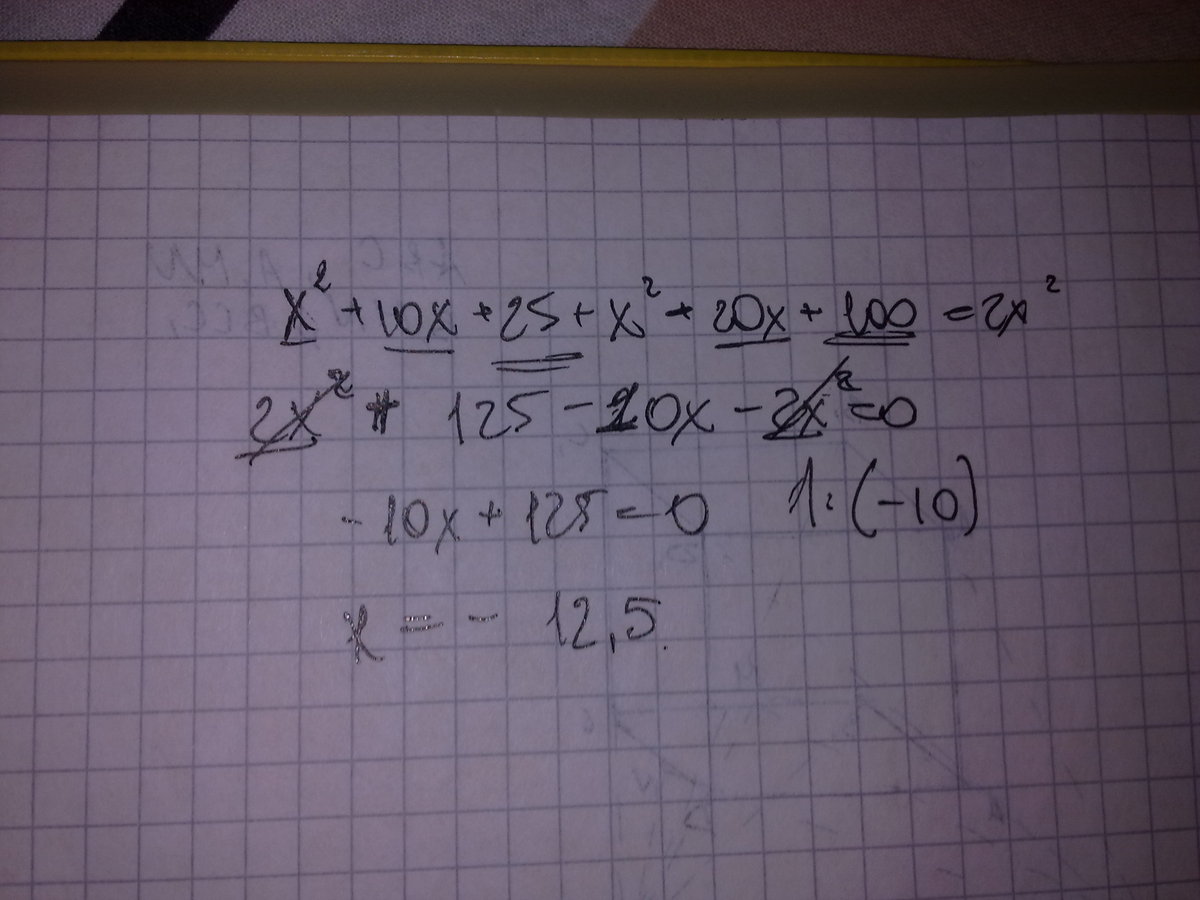 x² + 10x + 25 + x² + 20x + 100 = 2x²
2x² + 125 - 10x - 2x² = 0
- 10x + 125 = 0 /:(-10)
x = - 12,5.